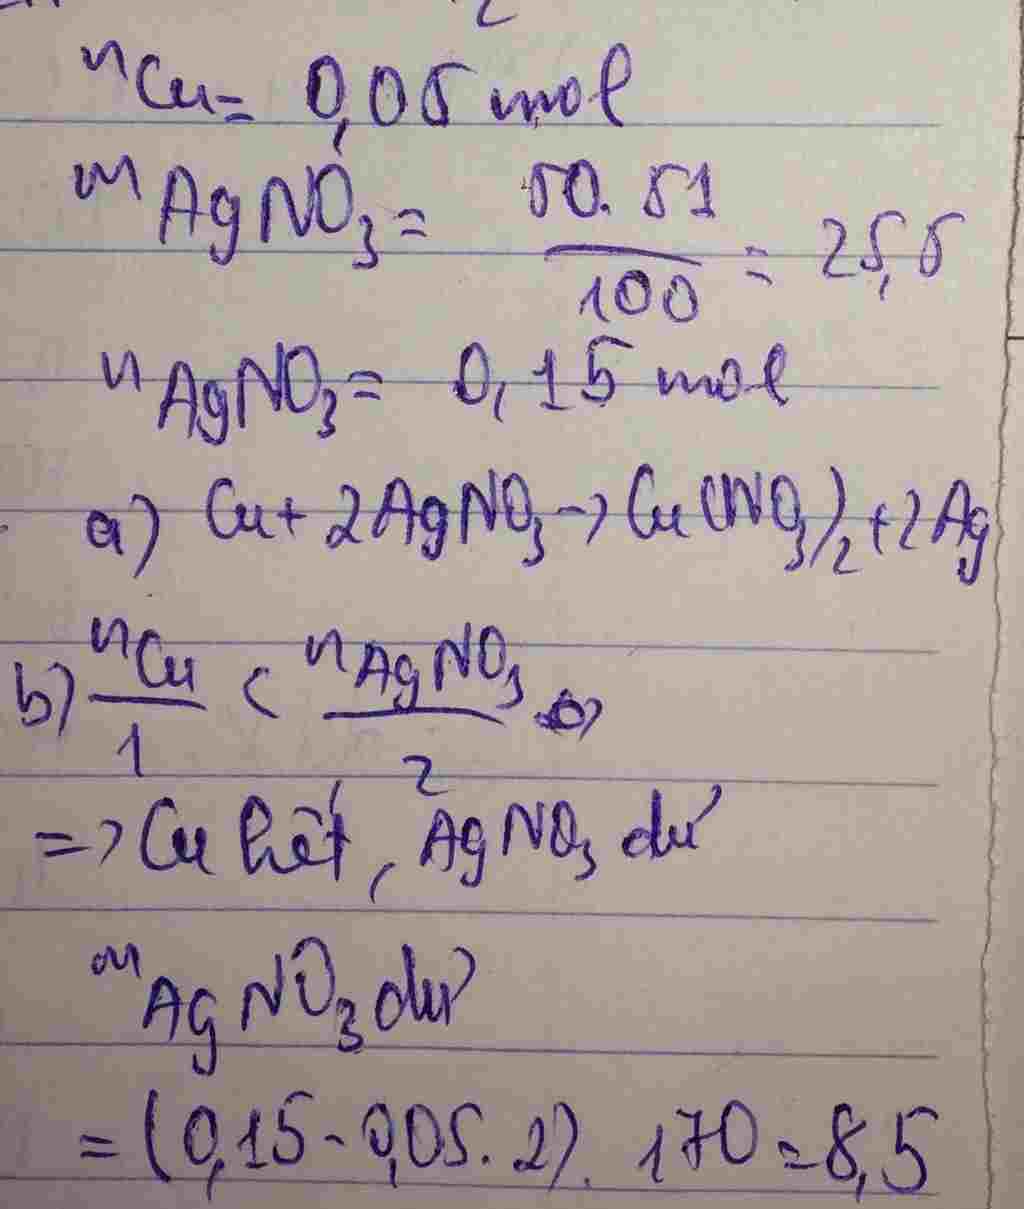 2
nCu = 0,05 mol
mAgNO3 = 50.51/100 = 25,5
nAgNO3 = 0,15 mol
a) Cu + 2AgNO3 -> Cu(NO3)2 + 2Ag
b) nCu/1 < nAgNO3/2
=> Cu hết, AgNO3 dư
mAgNO3 dư
= (0,15 - 0,05. 2). 170 = 8,5